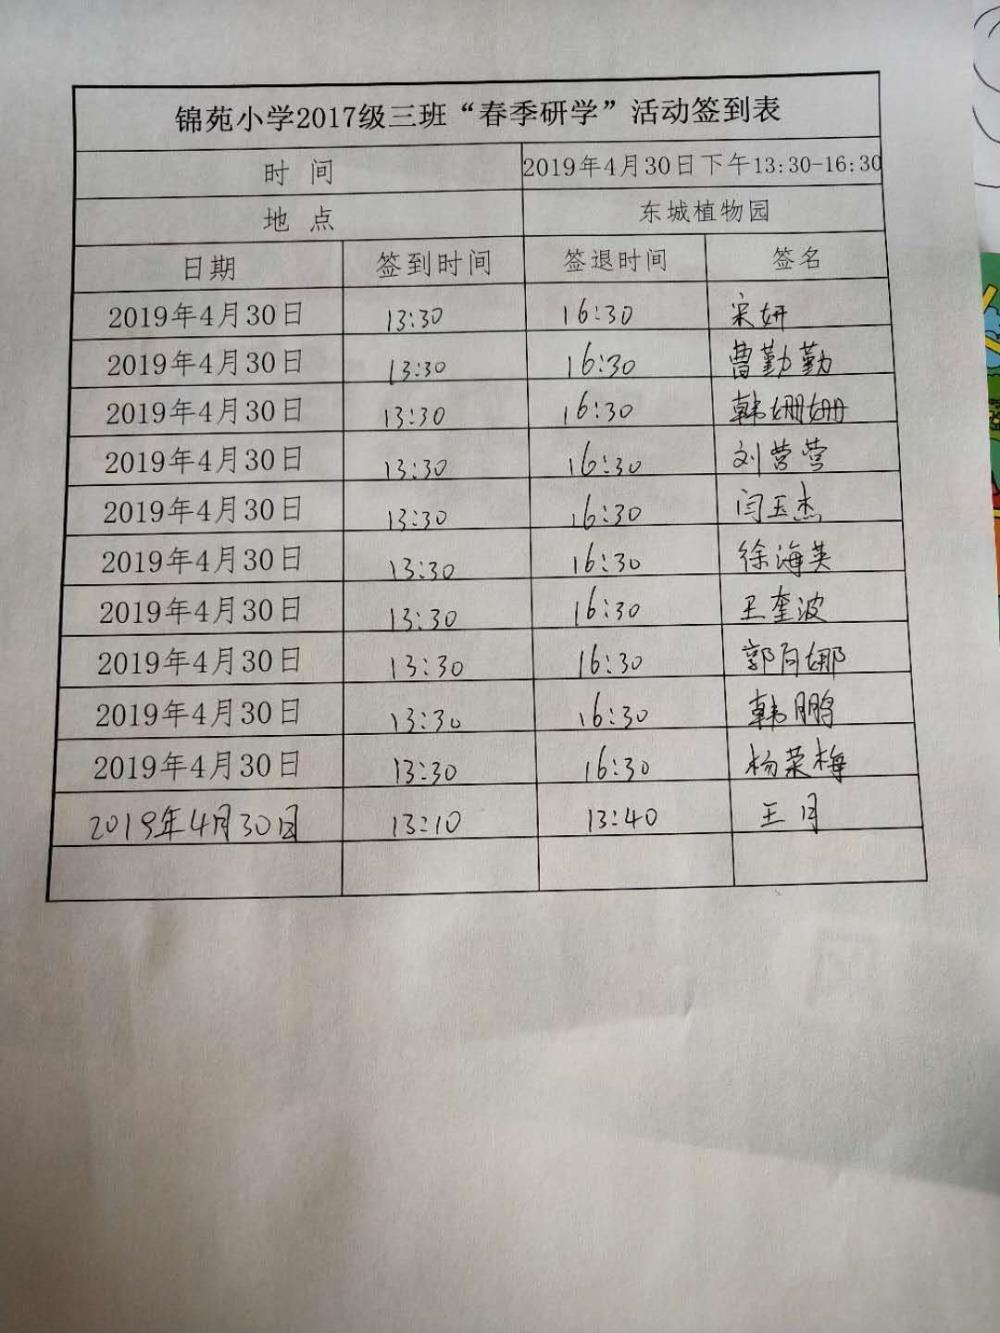 锦苑小学2017级三班“春季研学”活动签到表
时 间 2019年4月30日下午13:30-16:30
地 点 东城植物园
日期 签到时间 签退时间 签名
2019年4月30日 13:30 16:30 宋妍
2019年4月30日 13:30 16:30 曹勤勤
2019年4月30日 13:30 16:30 韩姗姗
2019年4月30日 13:30 16:30 刘营营
2019年4月30日 13:30 16:30 闫玉杰
2019年4月30日 13:30 16:30 徐海英
2019年4月30日 13:30 16:30 王奎波
2019年4月30日 13:30 16:30 郭月娜
2019年4月30日 13:30 16:30 韩鹏
2019年4月30日 13:30 16:30 杨荣梅
2019年4月30日 13:10 13:40 王月